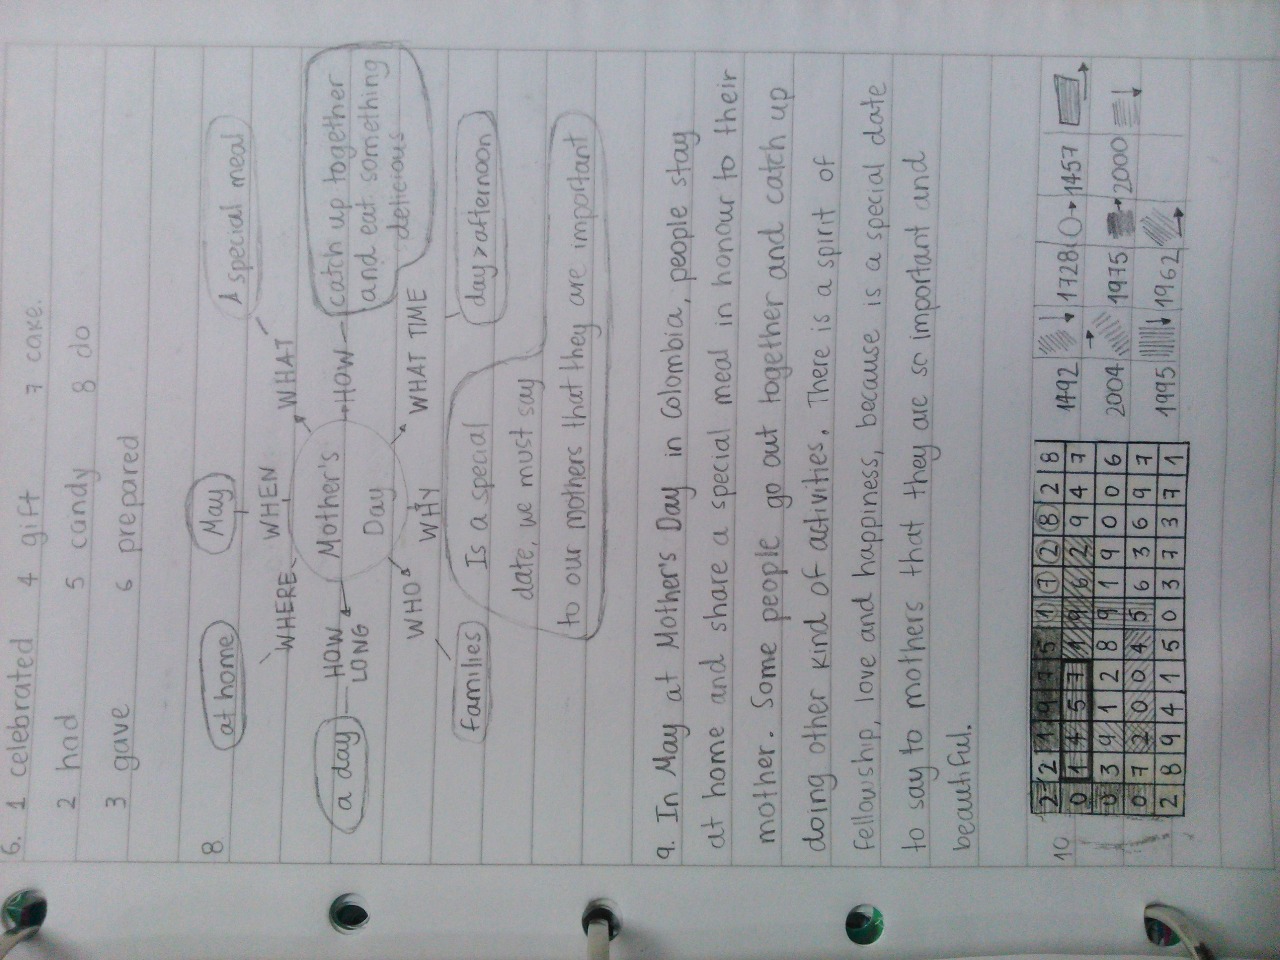 6. 1 celebrated 4 gift 7 cake.
2 had 5 candy 8 do
3 gave 6 prepared
8
at home May A special meal
WHERE WHEN WHAT
a day HOW LONG Mother's Day HOW catch up together and eat something delicious
WHO WHY WHAT TIME
families day > afternoon
Is a special
date, we must say
to our mothers that they are important
9. In May at Mother's Day in Colombia, people stay
at home and share a special meal in honour to their
mother. Some people go out together and catch up
doing other kind of activities. There is a spirit of
fellowship, love and happiness, because is a special date
to say to mothers that they are so important and
beautiful.
10
2 2 1 9 7 5 1 7 2 8 2 8
0 1 4 5 7 1 9 6 2 9 4 7
0 3 9 1 2 8 9 1 9 0 0 6
0 7 2 0 0 4 5 6 3 6 9 7
2 8 9 4 1 5 0 3 7 3 7 1
1492 1728 1457
2004 1975 2000
1995 1962